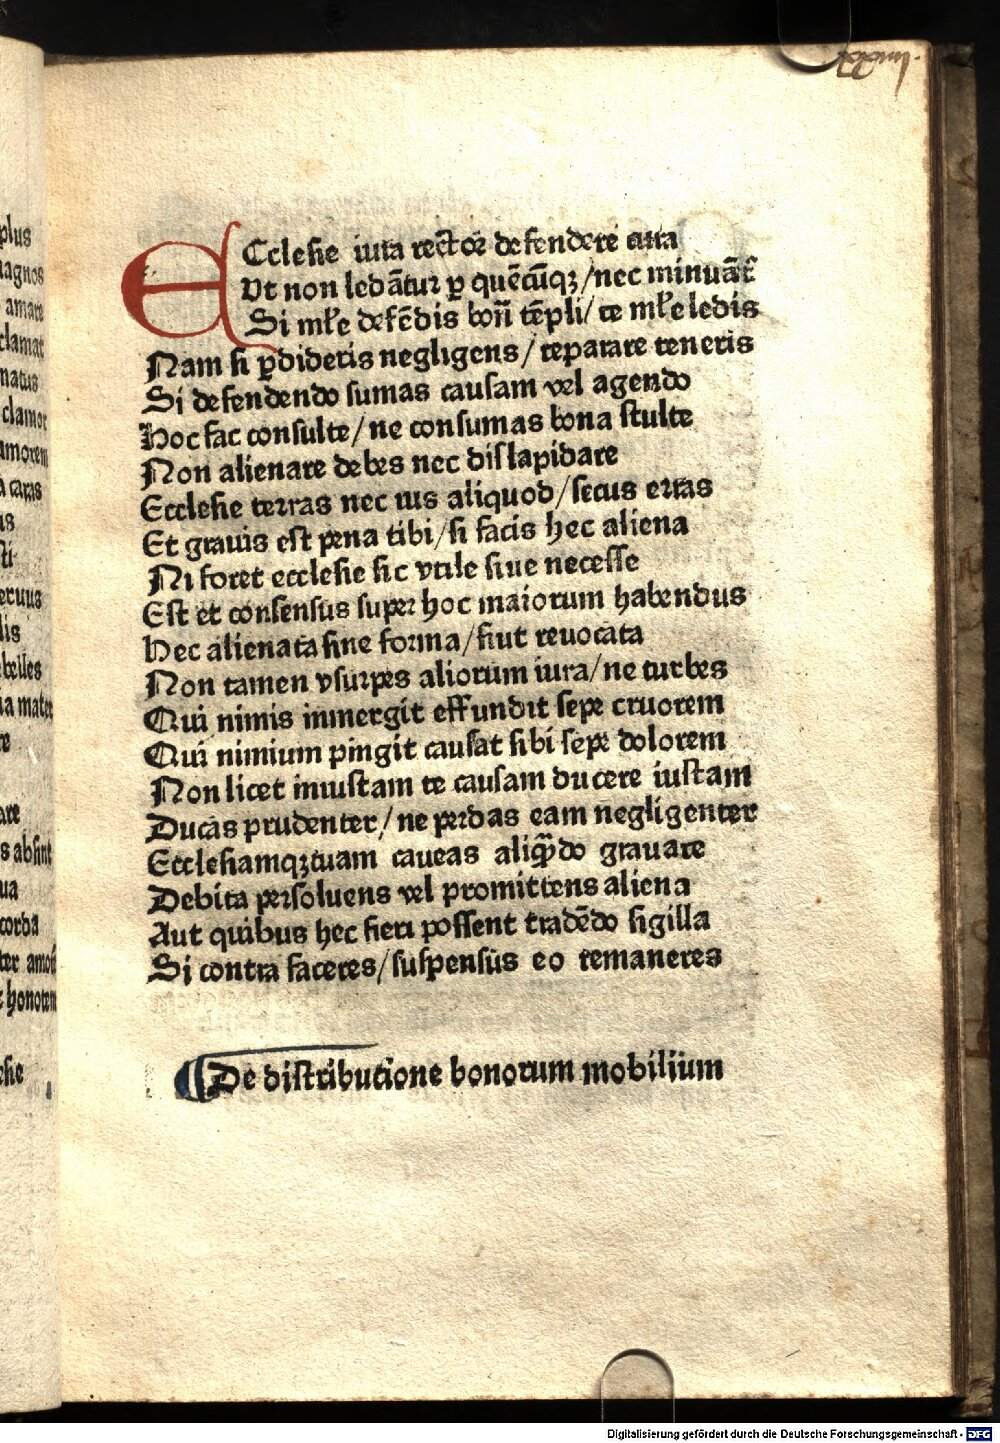 ECclesie iura rectōr defendere cura
Vt non ledātur ꝑ quēcūqꝫ/nec minuāt̄
Si mƚe defēdis boň tēpli/te mƚe ledis
Nam si ꝑdideris negligens/reparare teneris
Si defendendo sumas causam vel agendo
Hoc fac consulte/ne consumas bona stulte
Non alienare debes nec dislapidare
Ecclesie terras nec ius aliquod/secus erras
Et grauis est pena tibi/si facis hec aliena
Ni foret ecclesie sic vtile siue necesse
Est et consensus super hoc maiorum habendus
Hec alienata sine forma/sint reuocata
Non tamen vsurpes aliorum iura/ne turbes
Qui nimis inmergit effundit sepe cruorem
Qui nimium pingit causat sibi sepe dolorem
Non licet iniustam te causam ducere iustam
Ducas prudenter/ne perdas eam negligenter
Ecclesiamqꝫ tuam caueas aliqn̄do grauare
Debita persoluens vel promittens aliena
Aut quibus hec fieri possent tradēdo sigilla
Si contra faceres/suspensus eo remaneres
De distributione bonorum mobilium
plus
magnos
amare
clamat
natus
clamor
amorem
caras
us
sti
eruus
lis
belles
ia mater
re
are
s absint
ua
corda
ter amor
honorem
sie
Digitalisierung gefördert durch die Deutsche Forschungsgemeinschaft - DFG